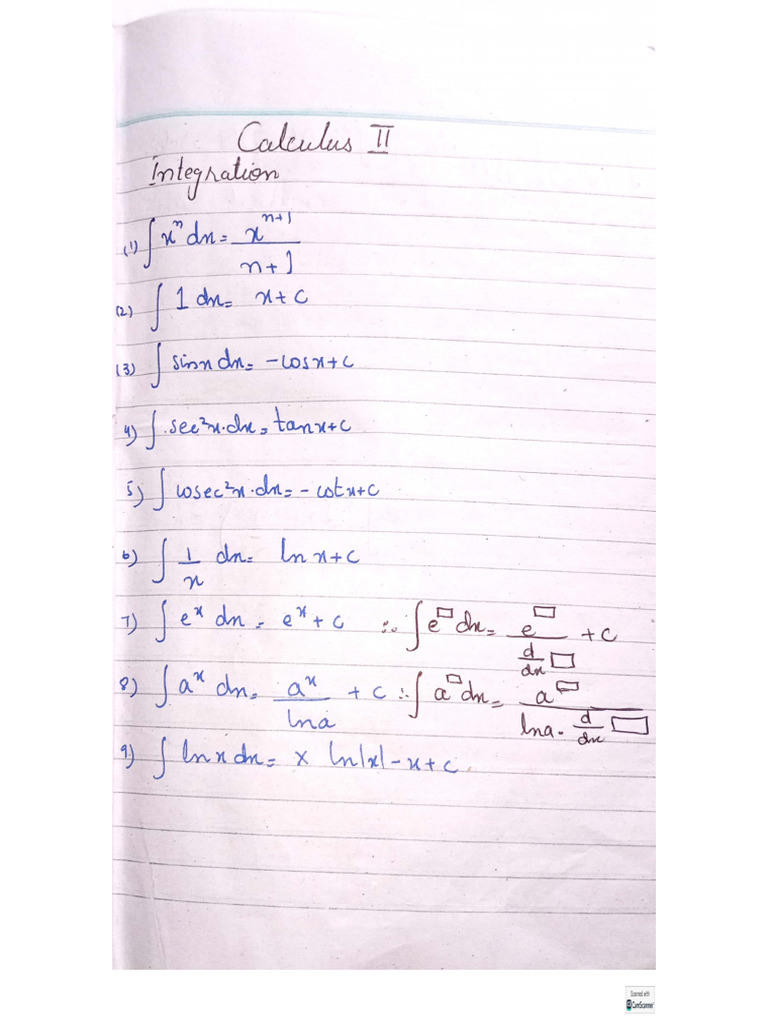 Calculus II
Integration
(1) ∫ xⁿ dx = xⁿ⁺¹ / n+1
(2) ∫ 1 dx = x + c
(3) ∫ sinx dx = -cosx + c
4) ∫ sec²x·dx = tanx + c
5) ∫ cosec²x·dx = -cotx + c
6) ∫ 1/x dx = ln x + c
7) ∫ eˣ dx = eˣ + c ∴ ∫ e^□ dx = e^□ / (d/dx □) + c
8) ∫ aˣ dx = aˣ / lna + c ∴ ∫ a^□ dx = a^□ / (lna · d/dx □)
9) ∫ lnx dx = x ln|x| - x + c.
Scanned with
CS CamScanner